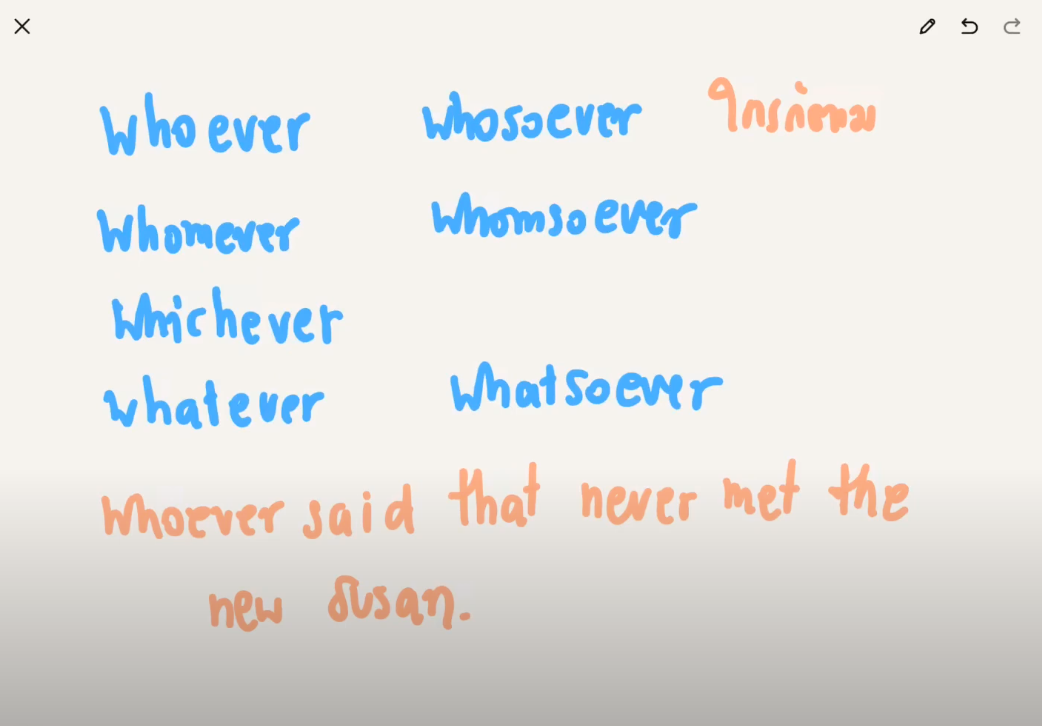 Whoever whosoever
Whomever Whomsoever
Whichever
whatever Whatsoever
Whoever said that never met the
new Susan.